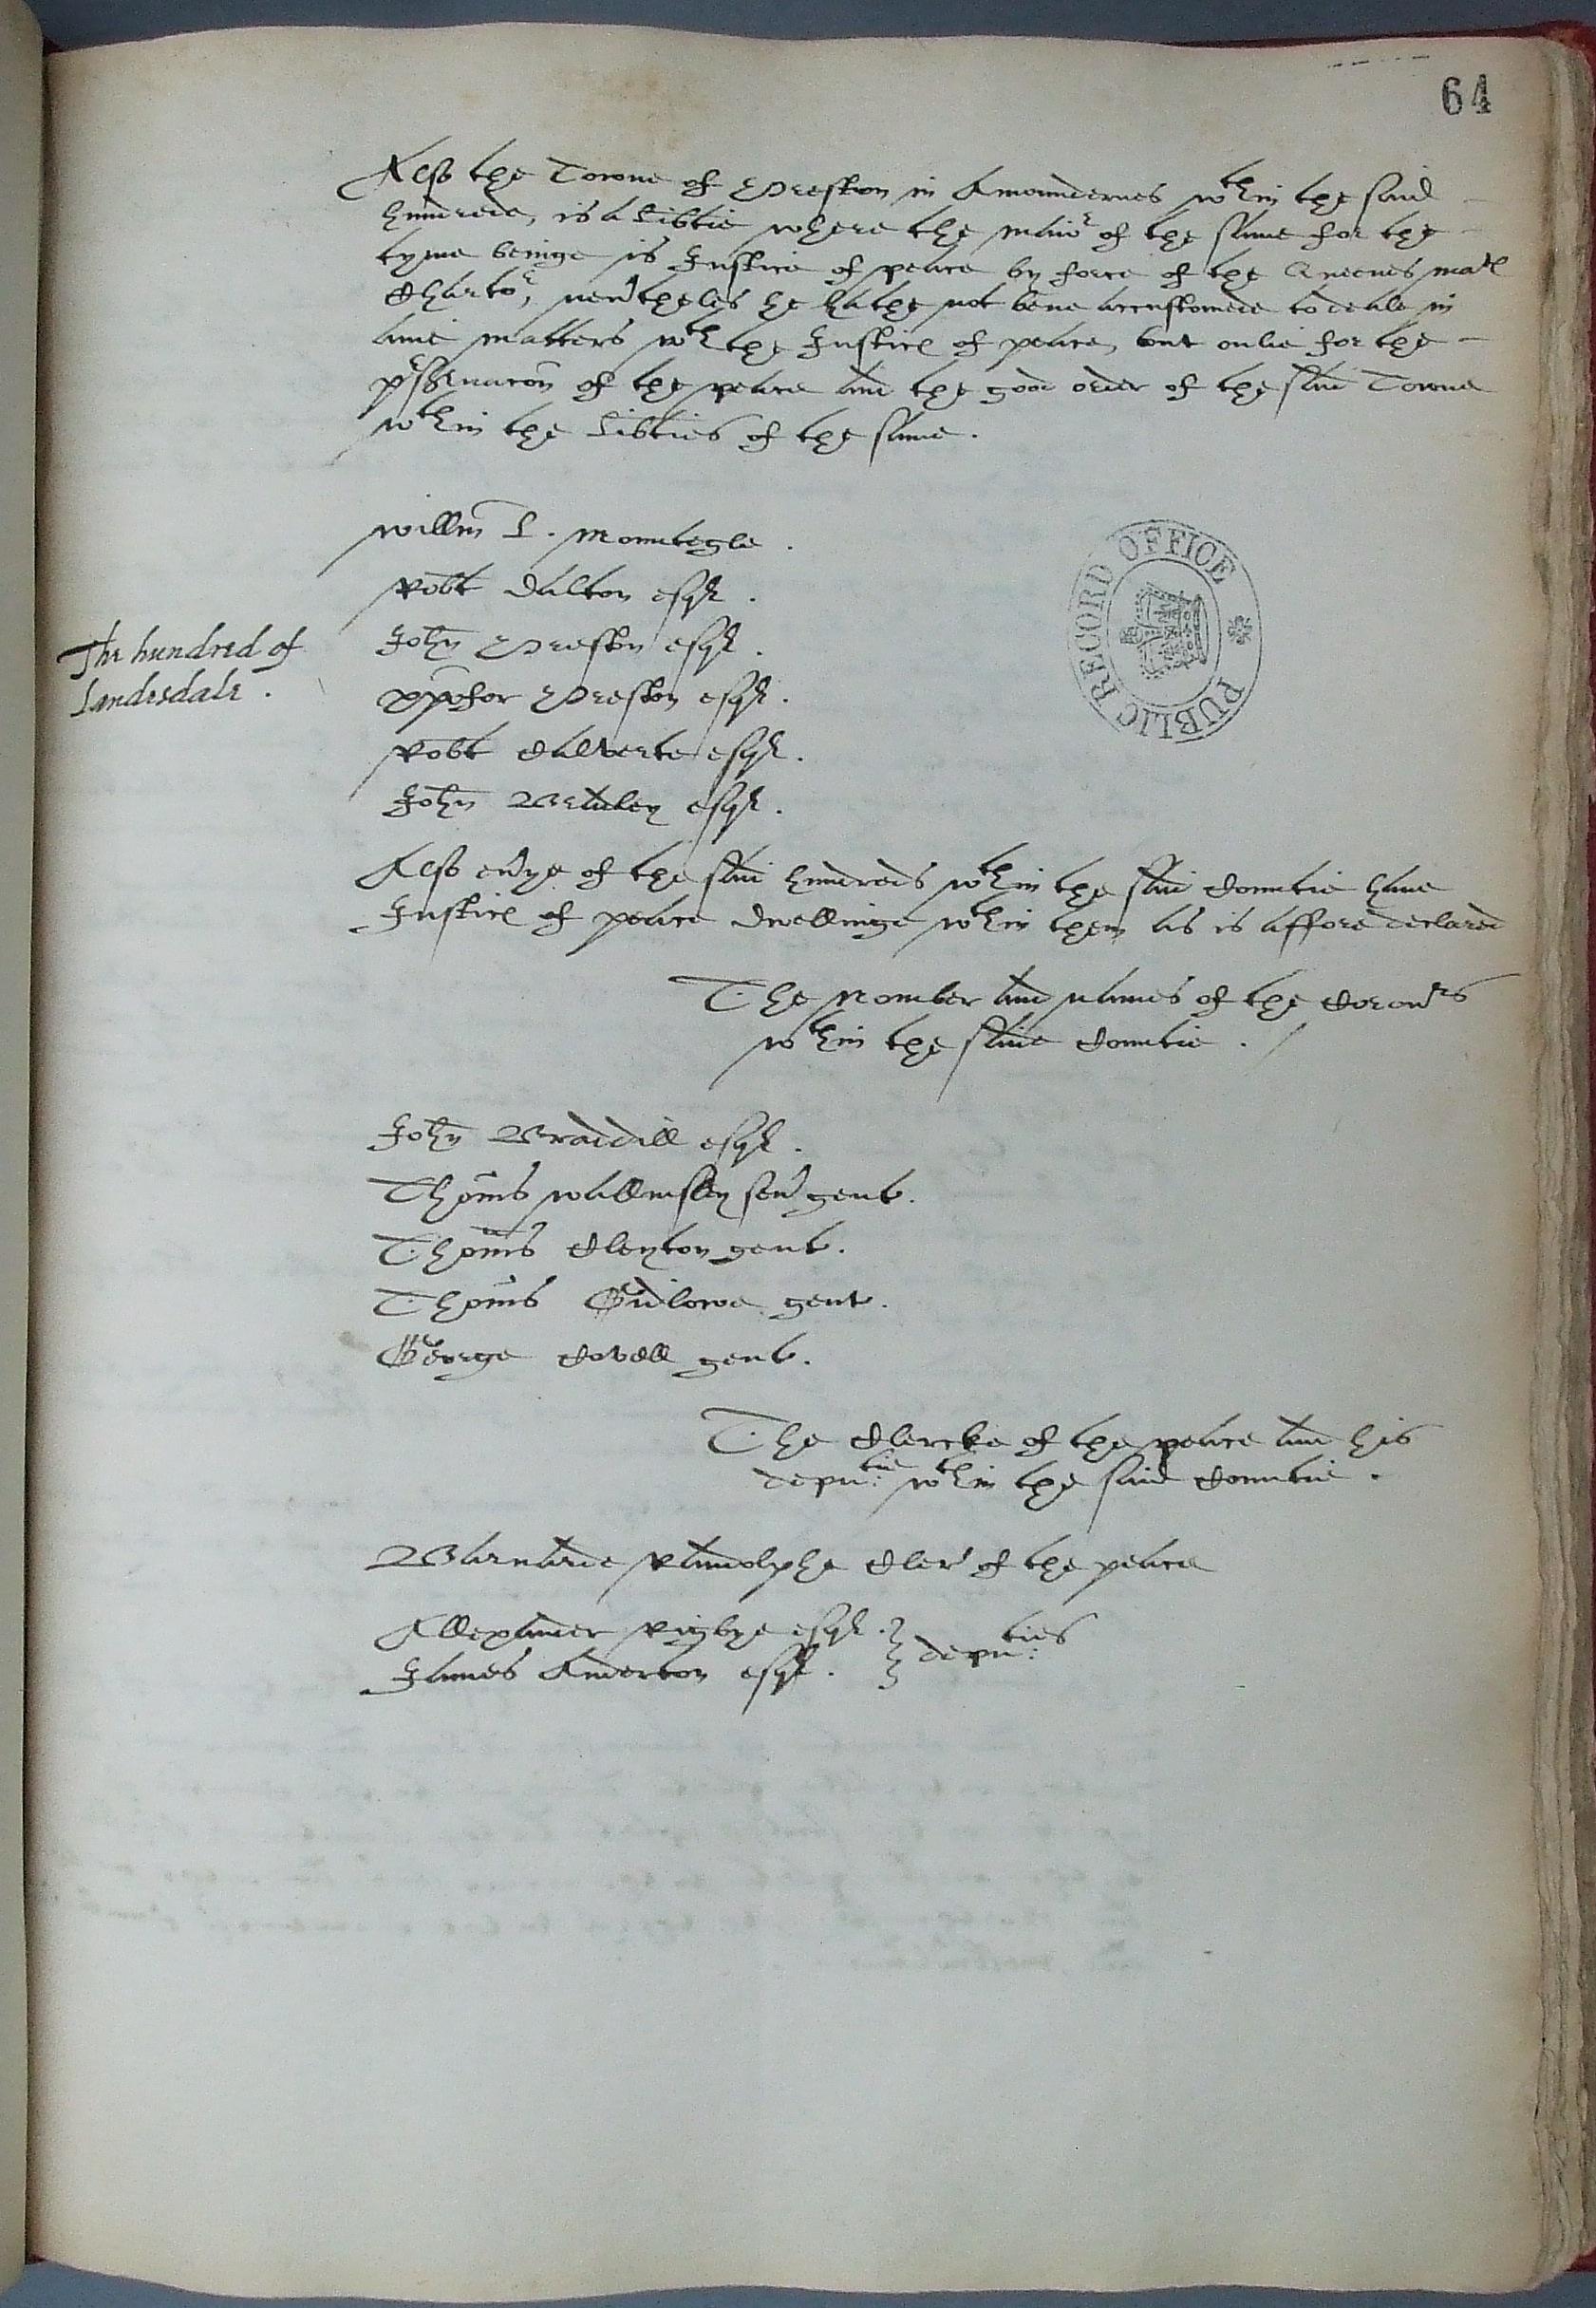 64
Also the Towne of Preston in Amoundernes wthin the said
hundrede, is a libtie where the maior of the same for the
tyme beinge is Justice of peace by force of the Queenes mats
Charter, nevtheles he hathe not bene accustomede to deale in
anie matters wth the Justics of peace, but onlie for the
pservacon of the peace and the good order of the said Towne
wthin the libties of the same.
Willm L. Mountegle.
Robt Dalton esqr.
John Preston esqr.
The hundred of
Landesdale.
Xpofor Preston esqr.
Robt Calverte esqr.
John Bradley esqr.
Also evye of the said hundreds wthin the said Countie have
Justics of peace dwellinge wthin them as is affore declared
The Nomber and names of the Coronrs
wthin the saide Countie.
John Braddill esqr.
Thoms Wallmsley sen gent.
Thoms Cleyton gent.
Thoms Gidlowe gent.
George Covell gent.
The Clercke of the peace and his
deputie wthin the said Countie.
Barnarde Randolphe Cler of the peace
Allexander Rigbye esqr.
James Anderton esqr. } deputies
PUBLIC RECORD OFFICE